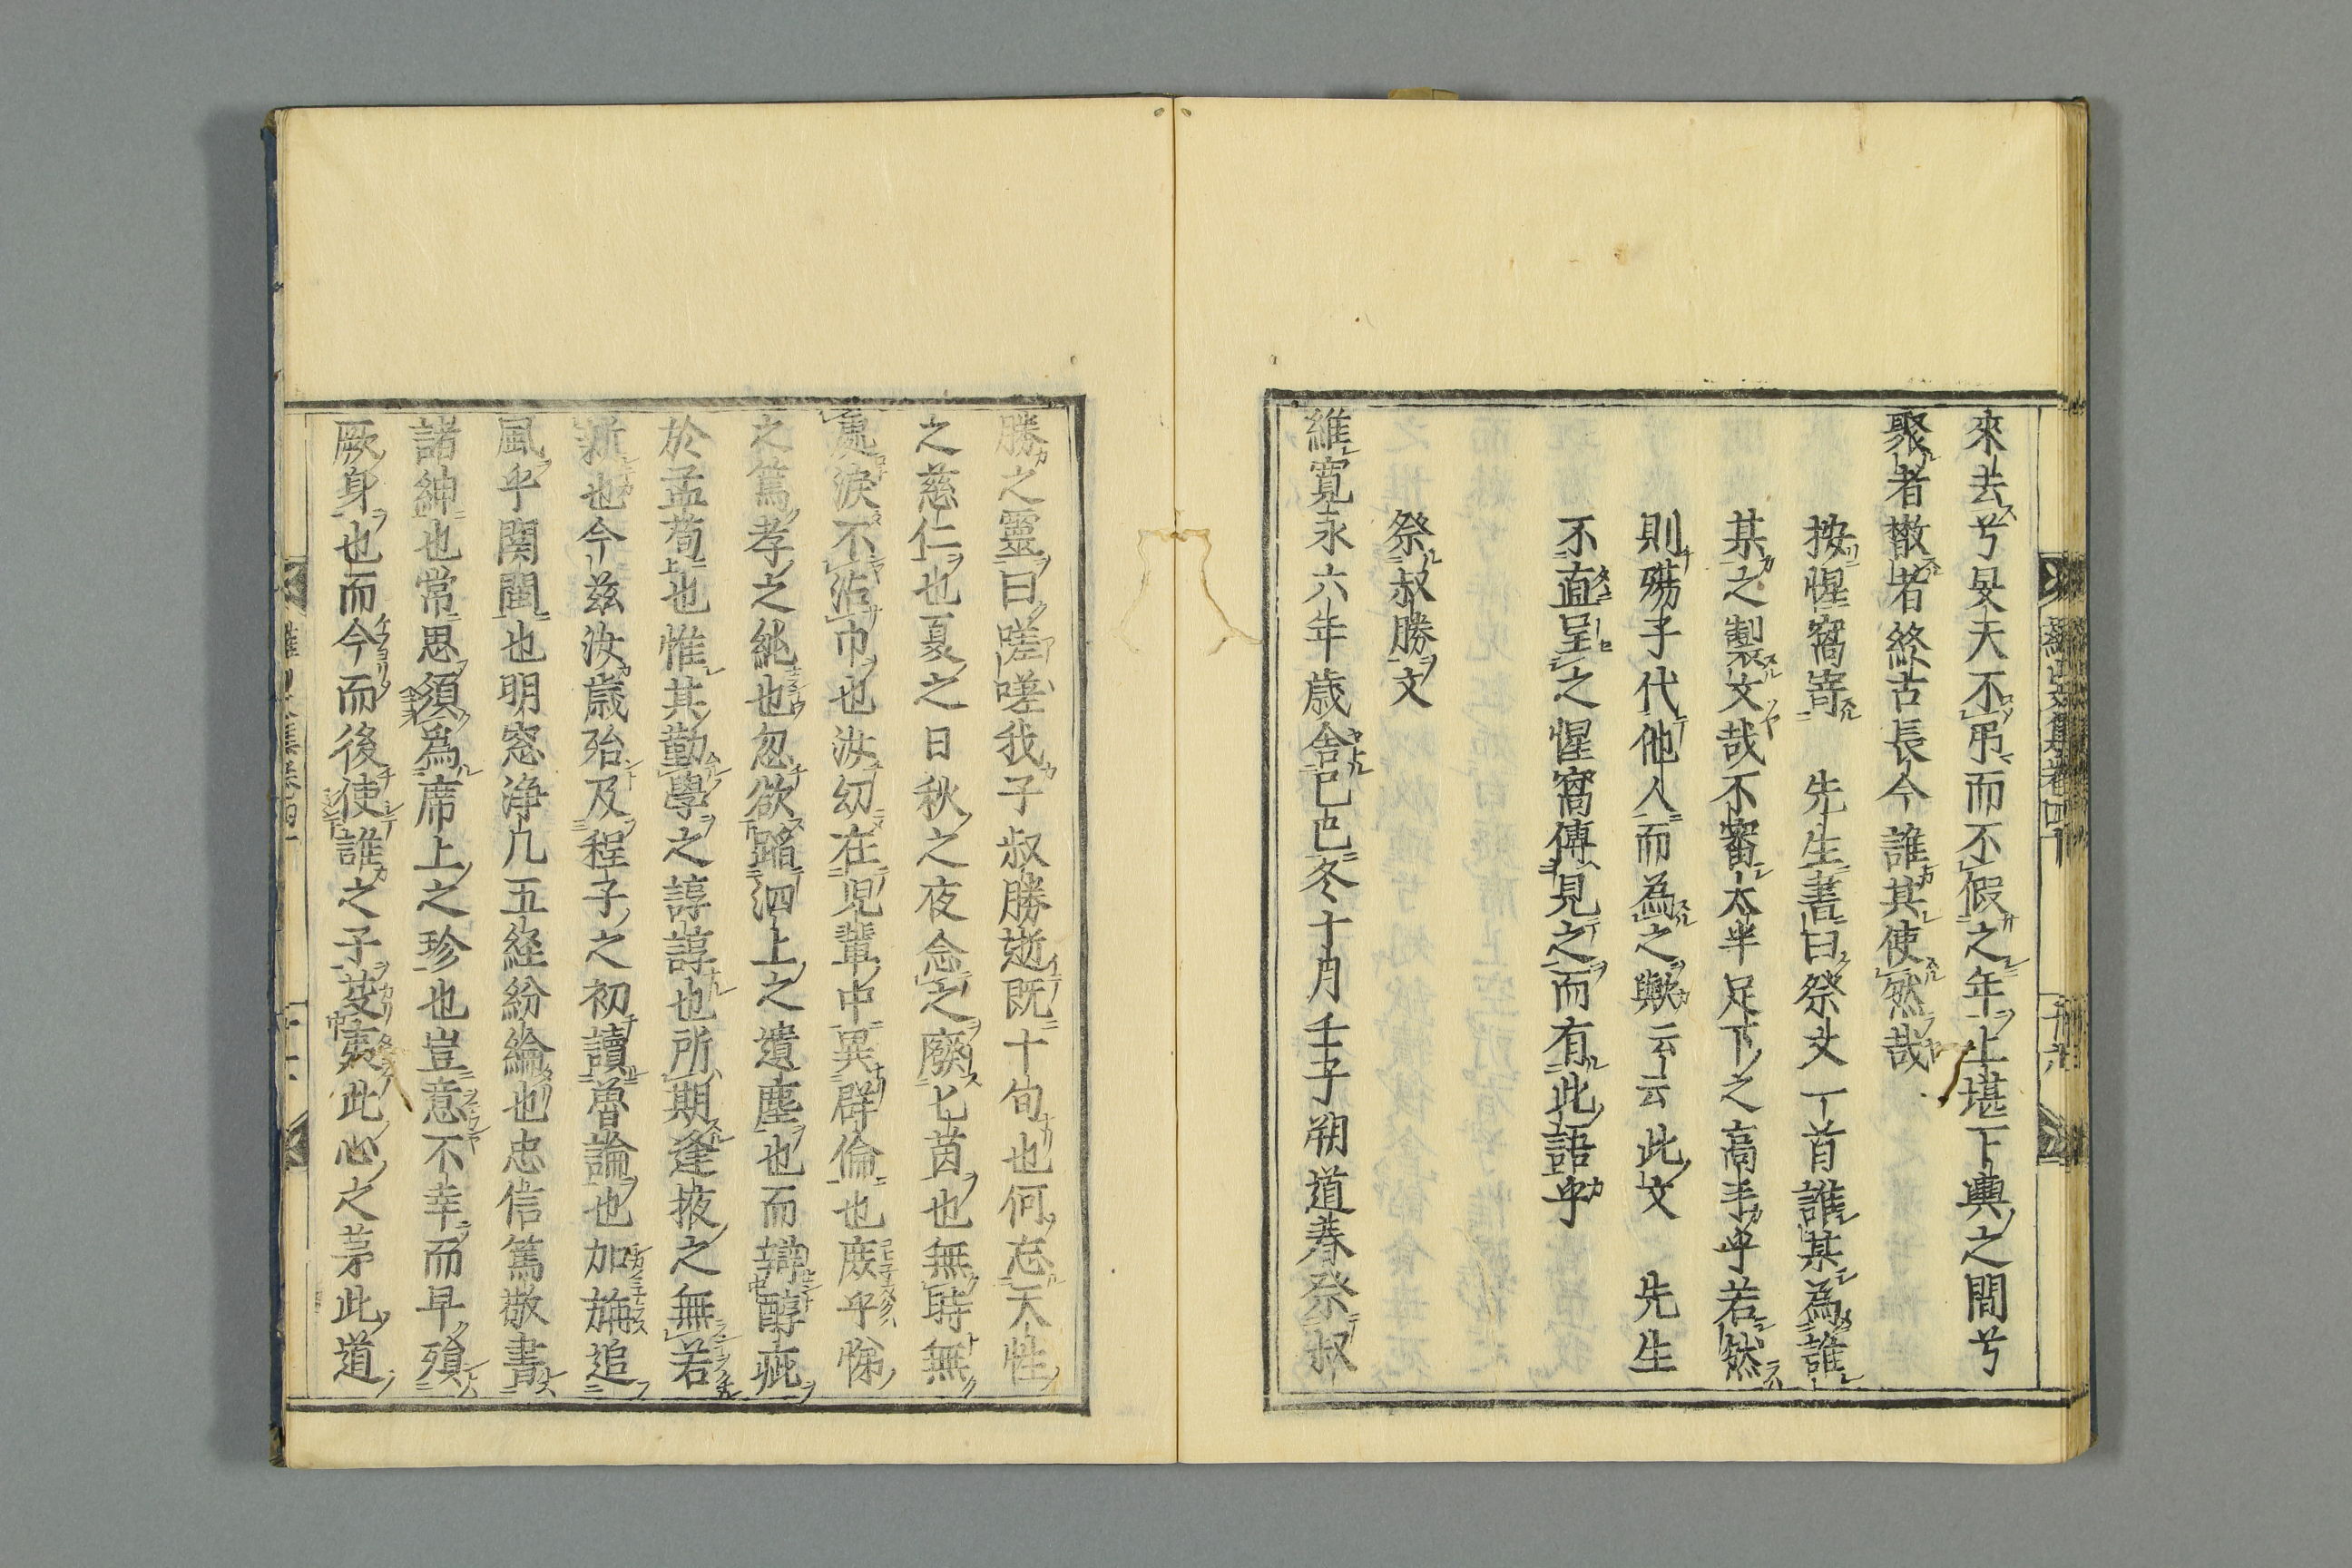 來去兮旻天不弔而不假之年上堪下輿之間兮
聚者散者終古長今誰其使然哉
按惺窩寄　先生書曰祭文一首誰某為誰
某之製文哉不審太半足下之高手乎若然
則殤子代他人而為之歟云云此文　先生
不直呈之惺窩傳見之而有此語乎
祭叔勝文
維寬永六年歳舎己巳冬十月壬子朔道春祭叔
勝之靈曰嗟嗟我子叔勝逝既十旬也何忘天性
之慈仁也夏之日秋之夜念之廢匕茵也無時無
處淚不沾巾也汝幼在児輩中異群倫也庶乎悌
之篤孝之純也忽欲蹈泗上之遺塵也而辯醇疵
於孟荀也惟其勤學之諄諄也所期逢掖之無若
新也今茲汝歳殆及程子之初讀魯論也加旃追
風乎関閩也明窓浄几五経紛綸也忠信篤敬書
諸紳也常思須為席上之珍也豈意不幸而早殞
厥身也而今而後使誰之子芟夷此心之茅此道